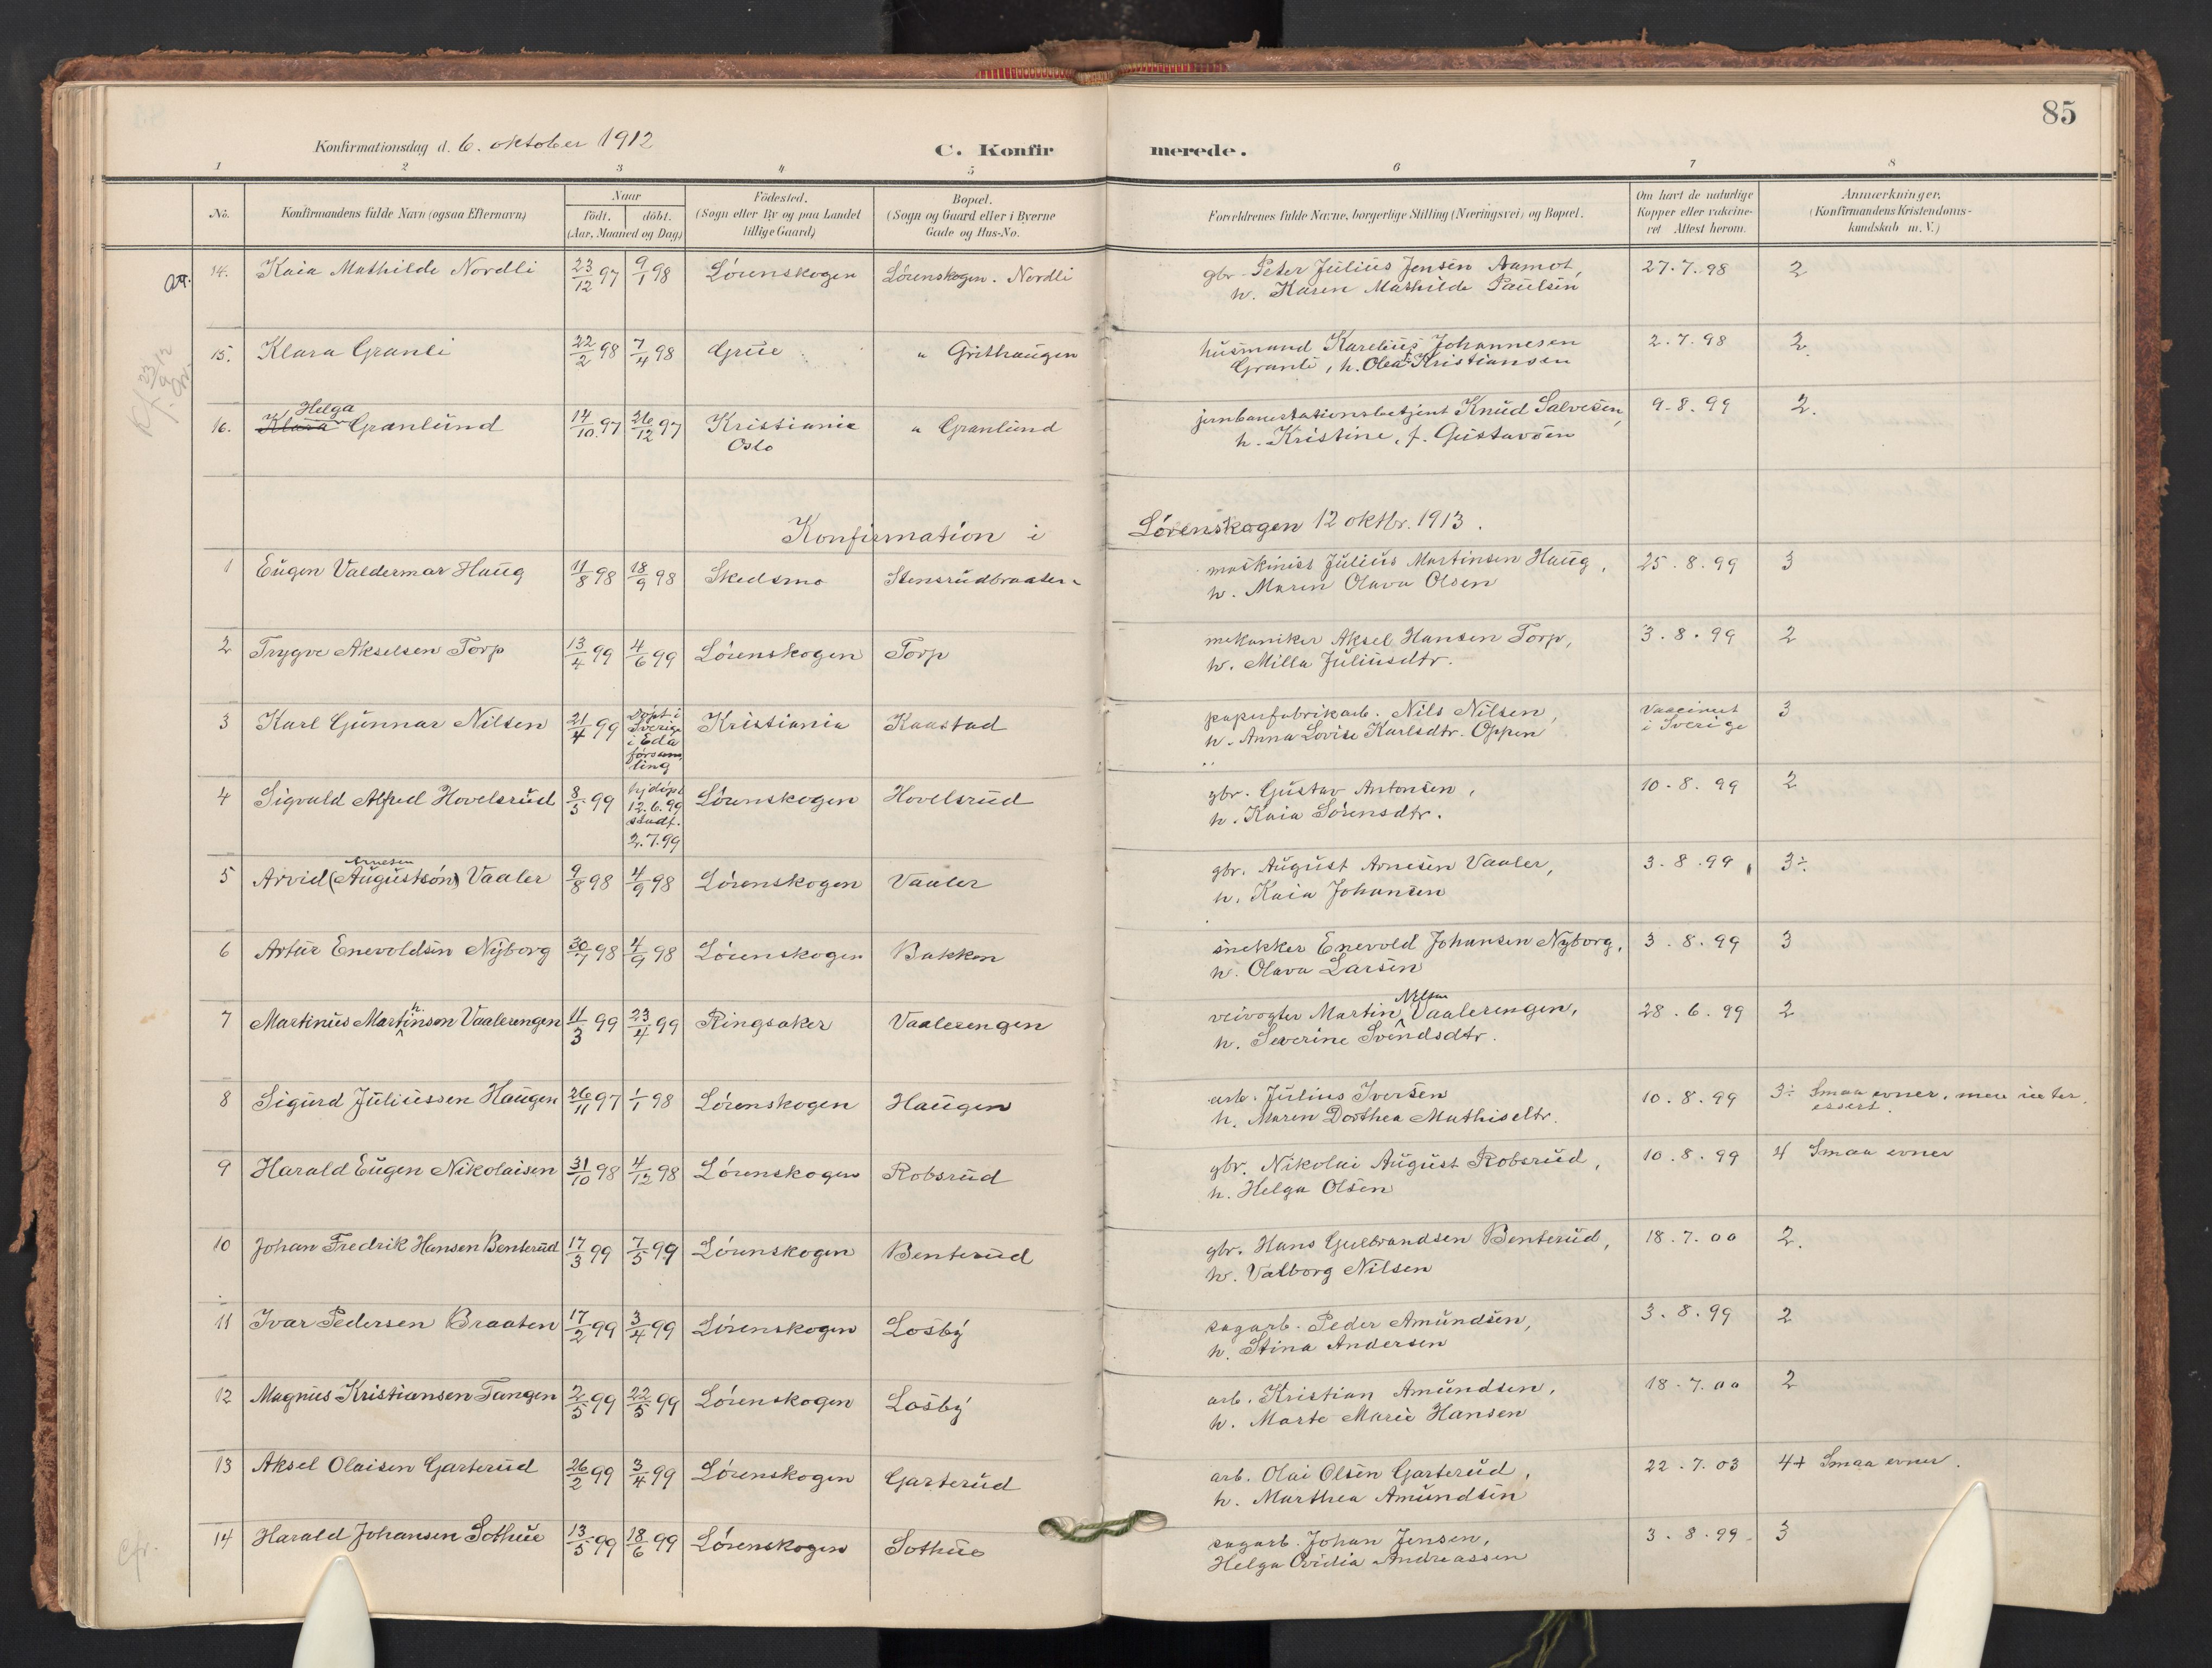 85
Konfirmationsdag d. 6. oktober 1912 C. Konfirmerede.
1 2 3 4 5 6 7 8
No. Konfirmandens fulde Navn (ogsaa Efternavn) Naar födt. döbt. (Aar, Maaned og Dag) Födested. (Sogn eller By og paa Landet tillige Gaard) Bopæl. (Sogn og Gaard eller i Byerne Gade og Hus-No. Forældrenes fulde Navne, borgerlige Stilling (Næringsvei) og Bopæl. Om havt de naturlige Kopper eller vakcineret Attest herom. Anmærkninger, (Konfirmandens Kristendomskundskab m. V.)
14. Kaia Mathilde Nordli 23/12 97 9/1 98 Lörenskogen Lörenskogen. Nordli gbr. Peter Julius Jensen Aamot, 27.7.98 2
h. Karen Mathilde Paulsen
15. Klara Granli 22/2 98 7/4 98 Grue " Grithaugen husmand Karelius Johannesen 2.7.98 2
Granli, h. Olea Kristiansen
16. Klara Helga Granlund 14/10 97 26/12 97 Kristiania Oslo " Granlund jernbanestationsbetjent Knud Salvesen, 9.8.99 2.
h. Kristine, f. Gustavsen
Konfirmation i Lörenskogen 12 oktbr. 1913.
1 Eugen Valdermar Haug 11/8 98 18/9 98 Skedsmo Stensrudbraaten maskinist Julius Martinsen Haug, 25.8.99 3
h. Maren Olava Olsen
2 Trygve Akselsen Torp 13/4 99 4/6 99 Lörenskogen Torp mekaniker Aksel Hansen Torp, 3.8.99 2
h. Milla Juliusdtr.
3 Karl Gunnar Nilsen 21/4 99 Döpt i Sverige i Eda församling Kristiania Kaastad papirfabrikarb. Nils Nilsen, Vaccinert i Sverige 3
h. Anna Lovise Karlsdtr. Oppen
4 Sigvald Alfred Hovelsrud 8/5 99 hj döpt 12.6.99 stadf. 2.7.99 Lörenskogen Hovelsrud gbr. Gustav Antonsen, 10.8.99 2
h. Kaia Sörensdtr.
5 Arvid (Augustsön) Arnesen Vaaler 9/8 98 4/9 98 Lörenskogen Vaaler gbr. August Arnesen Vaaler, 3.8.99 3÷
h. Kaia Johansen
6 Artur Enevoldsen Nyborg 30/7 98 4/9 98 Lörenskogen Bakken snekker Enevold Johansen Nyborg, 3.8.99 3
h. Olava Larsen
7 Martinius Martinsen Vaalerengen 11/3 99 23/4 99 Ringsaker Vaalerengen veivogter Martin Nilsen Vaalerengen, 28.6.99 2
h. Severine Svendsdtr.
8 Sigurd Juliussen Haugen 26/11 97 1/1 98 Lörenskogen Haugen arb. Julius Iversen 10.8.99 3÷ Smaa evner, men interessert.
h. Maren Dorthea Mathisdtr.
9 Harald Eugen Nikolaisen 31/10 98 4/12 98 Lörenskogen Robsrud gbr. Nikolai August Robsrud, 10.8.99 4 Smaa evner
h. Helga Olsen
10 Johan Fredrik Hansen Benterud 17/3 99 7/5 99 Lörenskogen Benterud gbr. Hans Gulbrandsen Benterud, 18.7.00 2.
h. Valborg Nilsen
11 Ivar Pedersen Braaten 17/2 99 3/4 99 Lörenskogen Losby sagarb. Peder Amundsen, 3.8.99 2
h. Stina Andersen
12 Magnus Kristiansen Tangen 2/5 99 22/5 99 Lörenskogen Losby arb. Kristian Amundsen, 18.7.00 2
h. Marte Marie Hansen
13 Aksel Olaisen Garterud 26/2 99 3/4 99 Lörenskogen Garterud arb. Olai Olsen Garterud, 22.7.03 4+ Smaa evner.
h. Marthea Amundsen
cfr. 14 Harald Johansen Sothue 13/5 99 18/6 99 Lörenskogen Sothue sagarb. Johan Jensen, 3.8.99 3
Helga Ovidia Andreassen